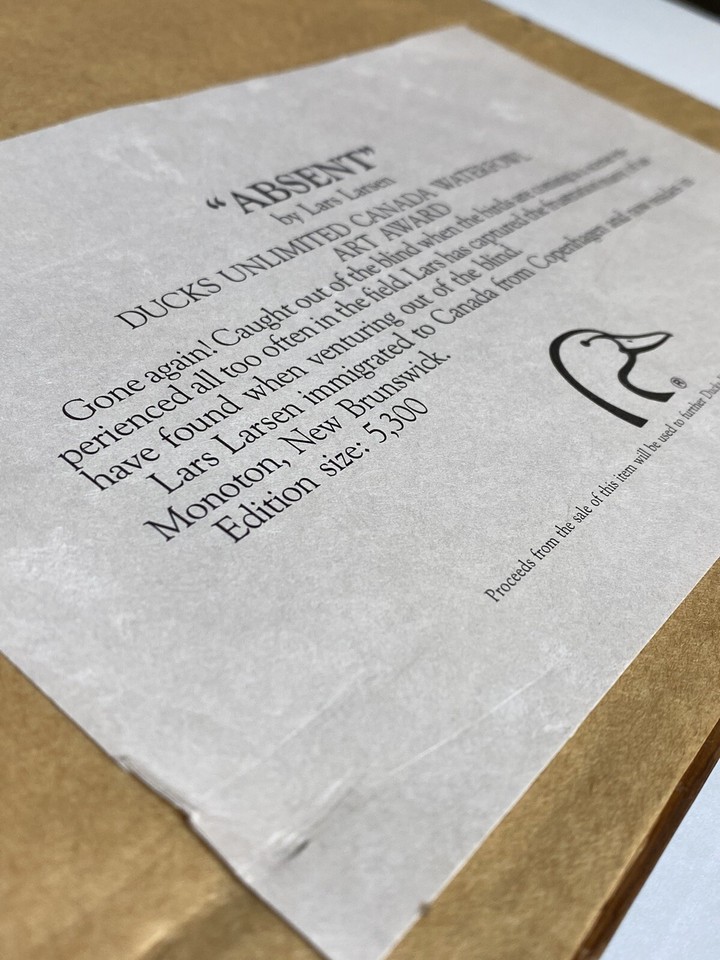 “ABSENT”
by Lars Larsen
DUCKS UNLIMITED CANADA WATERFOWL
ART AWARD
Gone again! Caught out of the blind when the birds are coming
perienced all too often in the field. Lars has captured the frustration many of us
have found when venturing out of the blind.
Lars Larsen immigrated to Canada from Copenhagen and now resides in
Monoton, New Brunswick.
Edition size: 5,300
®
Proceeds from the sale of this item will be used to further Ducks